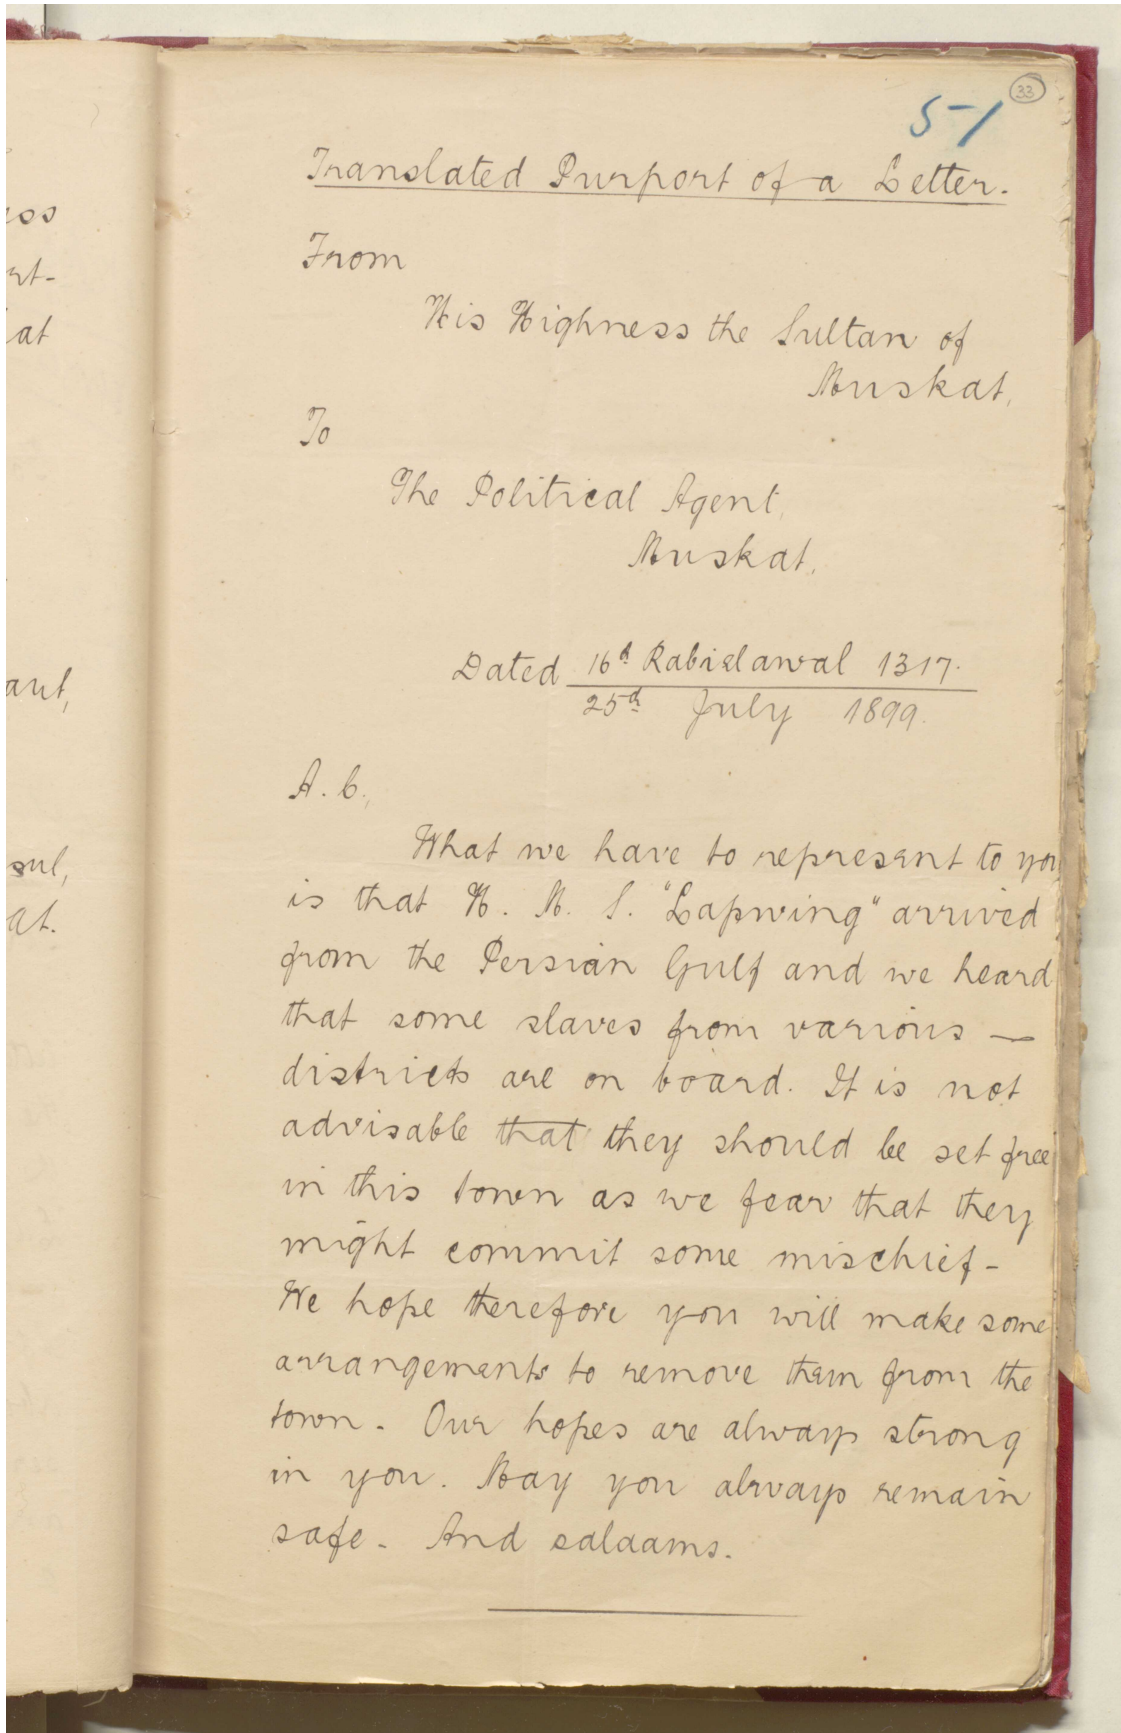 33
51
Translated Purport of a Letter.
From
His Highness the Sultan of
Muskat,
To
The Political Agent,
Muskat.
Dated 16th Rabielawal 1317.
25th July 1899.
A. C.,
What we have to represent to you
is that H. M. S. "Lapwing" arrived
from the Persian Gulf and we heard
that some slaves from various —
districts are on board. It is not
advisable that they should be set free
in this town as we fear that they
might commit some mischief -
We hope therefore you will make some
arrangements to remove them from the
town. Our hopes are always strong
in you. May you always remain
safe. And salaams.
ess
rt-
at
ant,
sul,
at.